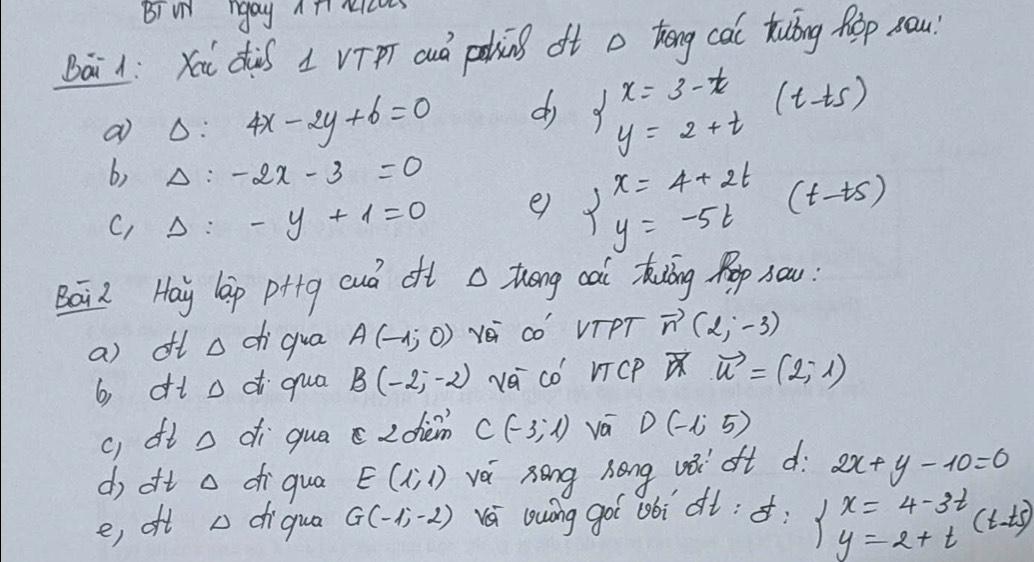 BTVN ngày
Bài 1: Xác định 1 VTPT của đt Δ trong các trường hợp sau:
a) Δ: 4x - 2y + 6 = 0
b, Δ: -2x - 3 = 0
c, Δ: - y + 1 = 0
d) { x = 3 - t (t-ts)
y = 2 + t
e) { x = 4 + 2t (t-ts)
y = -5t
Bài 2 Hãy lập pttq của đt Δ trong các trường hợp sau:
a) đt Δ đi qua A(-1; 0) và có VTPT n⃗ (2; -3)
b, đt Δ đi qua B(-2; -2) và có VTCP u⃗ = (2; 1)
c, đt Δ đi qua 2 điểm C(-3; 1) và D(-1; 5)
d, đt Δ đi qua E(1; 1) và song song với đt d: 2x + y - 10 = 0
e, đt Δ đi qua G(-1; -2) và vuông góc với đt: d: { x = 4 - 3t (t-ts)
y = 2 + t